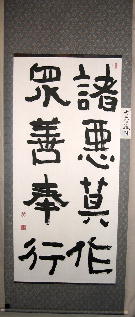 諸悪莫作
眾善奉行